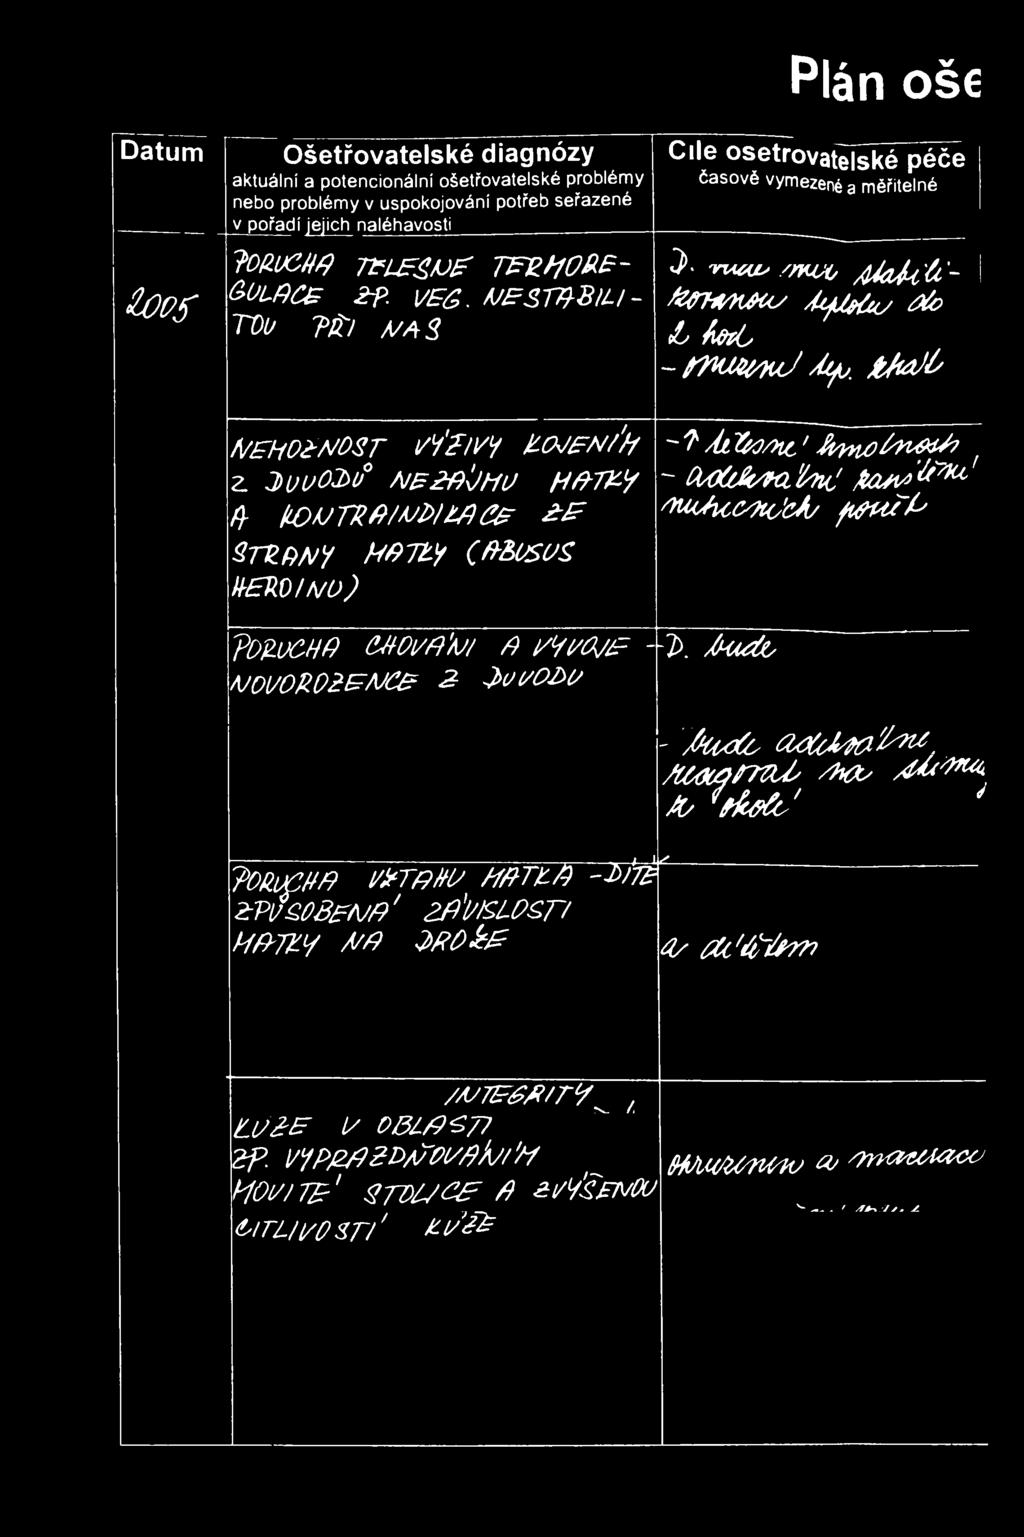 Plán oše
Datum
Ošetřovatelské diagnózy
aktuální a potencionální ošetřovatelské problémy
nebo problémy v uspokojování potřeb seřazené
v pořadí jejich naléhavosti
Cíle osetrovatelské péče
časově vymezené a měřitelné
2005
PORUCHA TĚLESNÉ TERMORE-
GULACE ZP. VEG. NESTABILI-
TOU PŘI NAS
D. mít stabili-
zovanou teplotu do
2 hod
- omezení tep. ztrát
NEMOŽNOST VÝŽIVY KOJENÍM
Z DŮVODŮ NEZÁJMU MATKY
A KONTRAINDIKACE ZE
STRANY MATKY (ABUSUS
HEROINU)
- ↑ tělesné hmotnosti
- adekvátní zajištění
nutričních potřeb
PORUCHA CHOVÁNI A VÝVOJE
NOVOROZENCE Z DUVODU
- D. bude
- bude adekvátně
reagovat na stimuly
z okolí
PORUCHA VZTAHU MATKA - DÍTĚ
ZPŮSOBENÁ ZÁVISLOSTI
MATKY NA DROZE
a dítětem
INTEGRITY
KUŽE V OBLASTI
ZP. VYPRAZDŇOVÁNÍM
ŘÍDKÉ STOLICE A ZVÝŠENOU
CITLIVOSTÍ KŮŽE
okruzenin a macerace